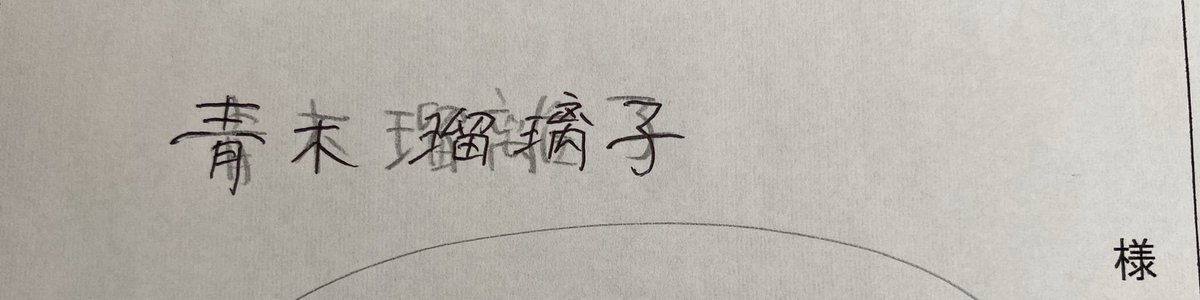 青木瑠璃子
様